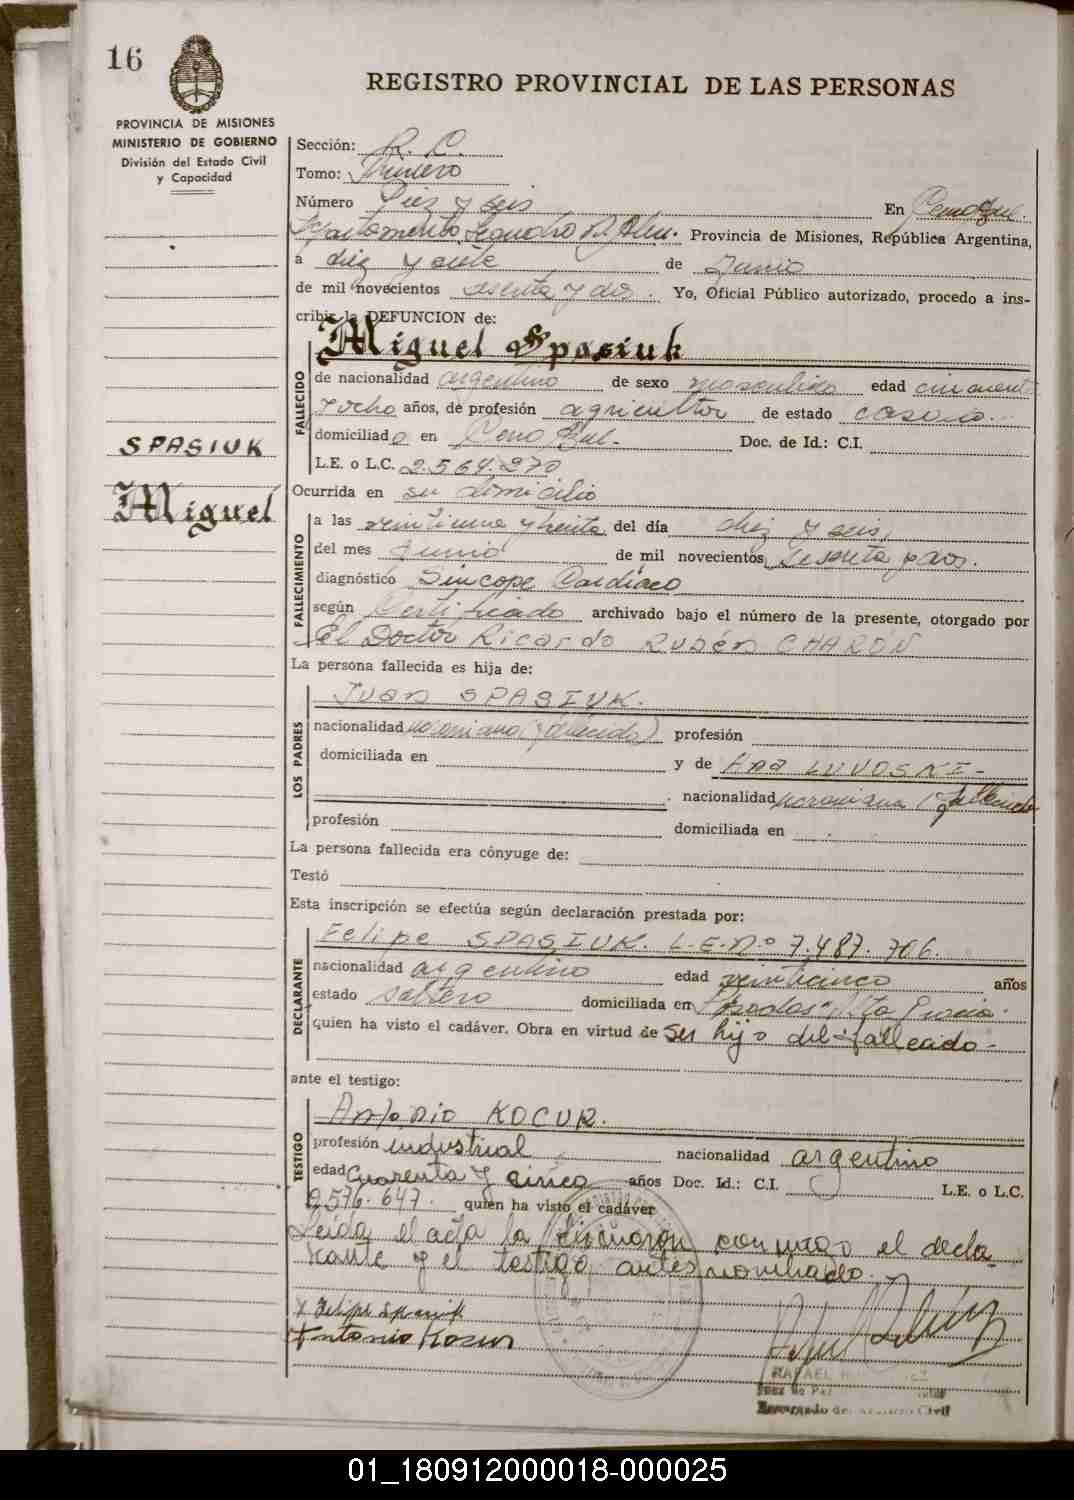 16
REGISTRO PROVINCIAL DE LAS PERSONAS
PROVINCIA DE MISIONES
MINISTERIO DE GOBIERNO
División del Estado Civil
y Capacidad
Sección: R. C.
Tomo: Primero
Número Diez y seis En Cerro Azul.
Departamento Leandro N. Alem. Provincia de Misiones, República Argentina,
a diez y siete de Junio
de mil novecientos sesenta y dos. Yo, Oficial Público autorizado, procedo a ins-
cribir la DEFUNCION de:
Miguel Spasiuk
FALLECIDO
de nacionalidad argentino de sexo masculino edad cincuenta
y ocho años, de profesión agricultor de estado casado.
domiciliado en Cerro Azul. Doc. de Id.: C.I.
L.E. o L.C. 2.564.270
SPASIUK
Miguel
Ocurrida en su domicilio
FALLECIMIENTO
a las veintiuna y treinta del día diez y seis,
del mes Junio de mil novecientos sesenta y dos.
diagnóstico Síncope Cardíaco
según Certificado archivado bajo el número de la presente, otorgado por
El Doctor Ricardo Rubén CHARÓN
La persona fallecida es hija de:
LOS PADRES
Juan SPASIUK.
nacionalidad ucraniano (fallecido) profesión
domiciliada en y de Ana LUVOSKI-
nacionalidad ucraniana (fallecida
profesión domiciliada en
La persona fallecida era cónyuge de:
Testó
Esta inscripción se efectúa según declaración prestada por:
DECLARANTE
Felipe SPASIUK. L.E.Nº 7.487.706.
nacionalidad argentino edad veinticinco años
estado soltero domiciliada en
quien ha visto el cadáver. Obra en virtud de ser hijo del fallecido-
ante el testigo:
TESTIGO
Antonio KOCUR.
profesión industrial nacionalidad argentino
edad cuarenta y cinco años Doc. Id.: C.I. L.E. o L.C.
2576.647. quien ha visto el cadáver
Leída el acta la firmaron conmigo el decla-
rante y el testigo antes nombrado.
x Felipe Spasiuk
x Antonio Kocur
RAFAEL
Juez de Paz
Encargado del Registro Civil
01_180912000018-000025